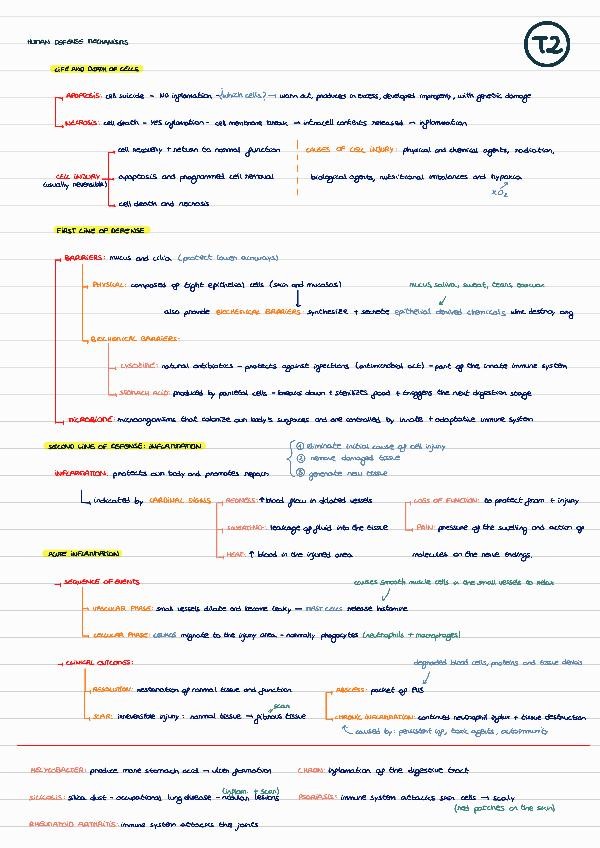 T2
HUMAN DEFENSE MECHANISMS
LIFE AND DEATH OF CELLS
APOPTOSIS: cell suicide - NO inflamation - (which cells?) → worn out, produced in excess, developed improperly, with genetic damage
NECROSIS: cell death - YES inflamation - cell membrane break → intracell contents released → inflamation
cell recovery + return to normal function
CAUSES OF CELL INJURY: physical and chemical agents, radiation,
CELL INJURY
(usually reversible)
apoptosis and programmed cell removal
biological agents, nutritional imbalances and hypoxia
cell death and necrosis
FIRST LINE OF DEFENSE
BARRIERS: mucus and cilia (protect lower airways)
PHYSICAL: composed of tight epithelial cells (skin and mucosas)
mucus, saliva, sweat, tears, earwax
also provide BIOCHEMICAL BARRIERS: synthesize + secrete epithelial derived chemicals
BIOCHEMICAL BARRIERS:
LYSOZIME: natural antibiotics - protects against infections (antimicrobial act) - part of the innate immune system
STOMACH ACID: produced by parietal cells - breaks down + sterilizes food + triggers the next digestion stage
MICROBIOME: microorganisms that colonize our body's surfaces and are controlled by innate + adaptative immune system
SECOND LINE OF DEFENSE: INFLAMMATION
① eliminate initial cause of cell injury
② remove damaged tissue
③ generate new tissue
INFLAMMATION: protects our body and promotes repair
indicated by CARDINAL SIGNS
REDNESS: ↑ blood flow in dilated vessels
LOSS OF FUNCTION: to protect from + injury
SWEATING: leakage of fluid into the tissue
PAIN: pressure of the swelling and action of
HEAT: ↑ blood in the injured area
molecules on the nerve endings.
ACUTE INFLAMMATION
SEQUENCE OF EVENTS
causes smooth muscle cells in the small vessels to relax
VASCULAR PHASE: small vessels dilate and become leaky → MAST CELLS release histamine
CELLULAR PHASE: migrate to the injury area - normally phagocytes (neutrophils + macrophages)
CLINICAL OUTCOMES:
degraded blood cells, proteins and tissue debris
RESOLUTION: restoration of normal tissue and function
ABSCESS: pocket of PUS
scar
SCAR: irreversible injury: normal tissue → fibrous tissue
CHRONIC INFLAMMATION: continued neutrophil influx + tissue destruction
caused by: persistent inf, toxic agents, autoimmunity
HELYCOBACTER: produce more stomach acid → ulcer formation
CHRON: inflamation of the digestive tract
(inflam. + scar)
SILICOSIS: silica dust - occupational lung disease - nodular lesions
PSORIASIS: immune system attacks skin cells → scaly
(red patches on the skin)
RHEUMATOID ARTHRITIS: immune system attacks the joints